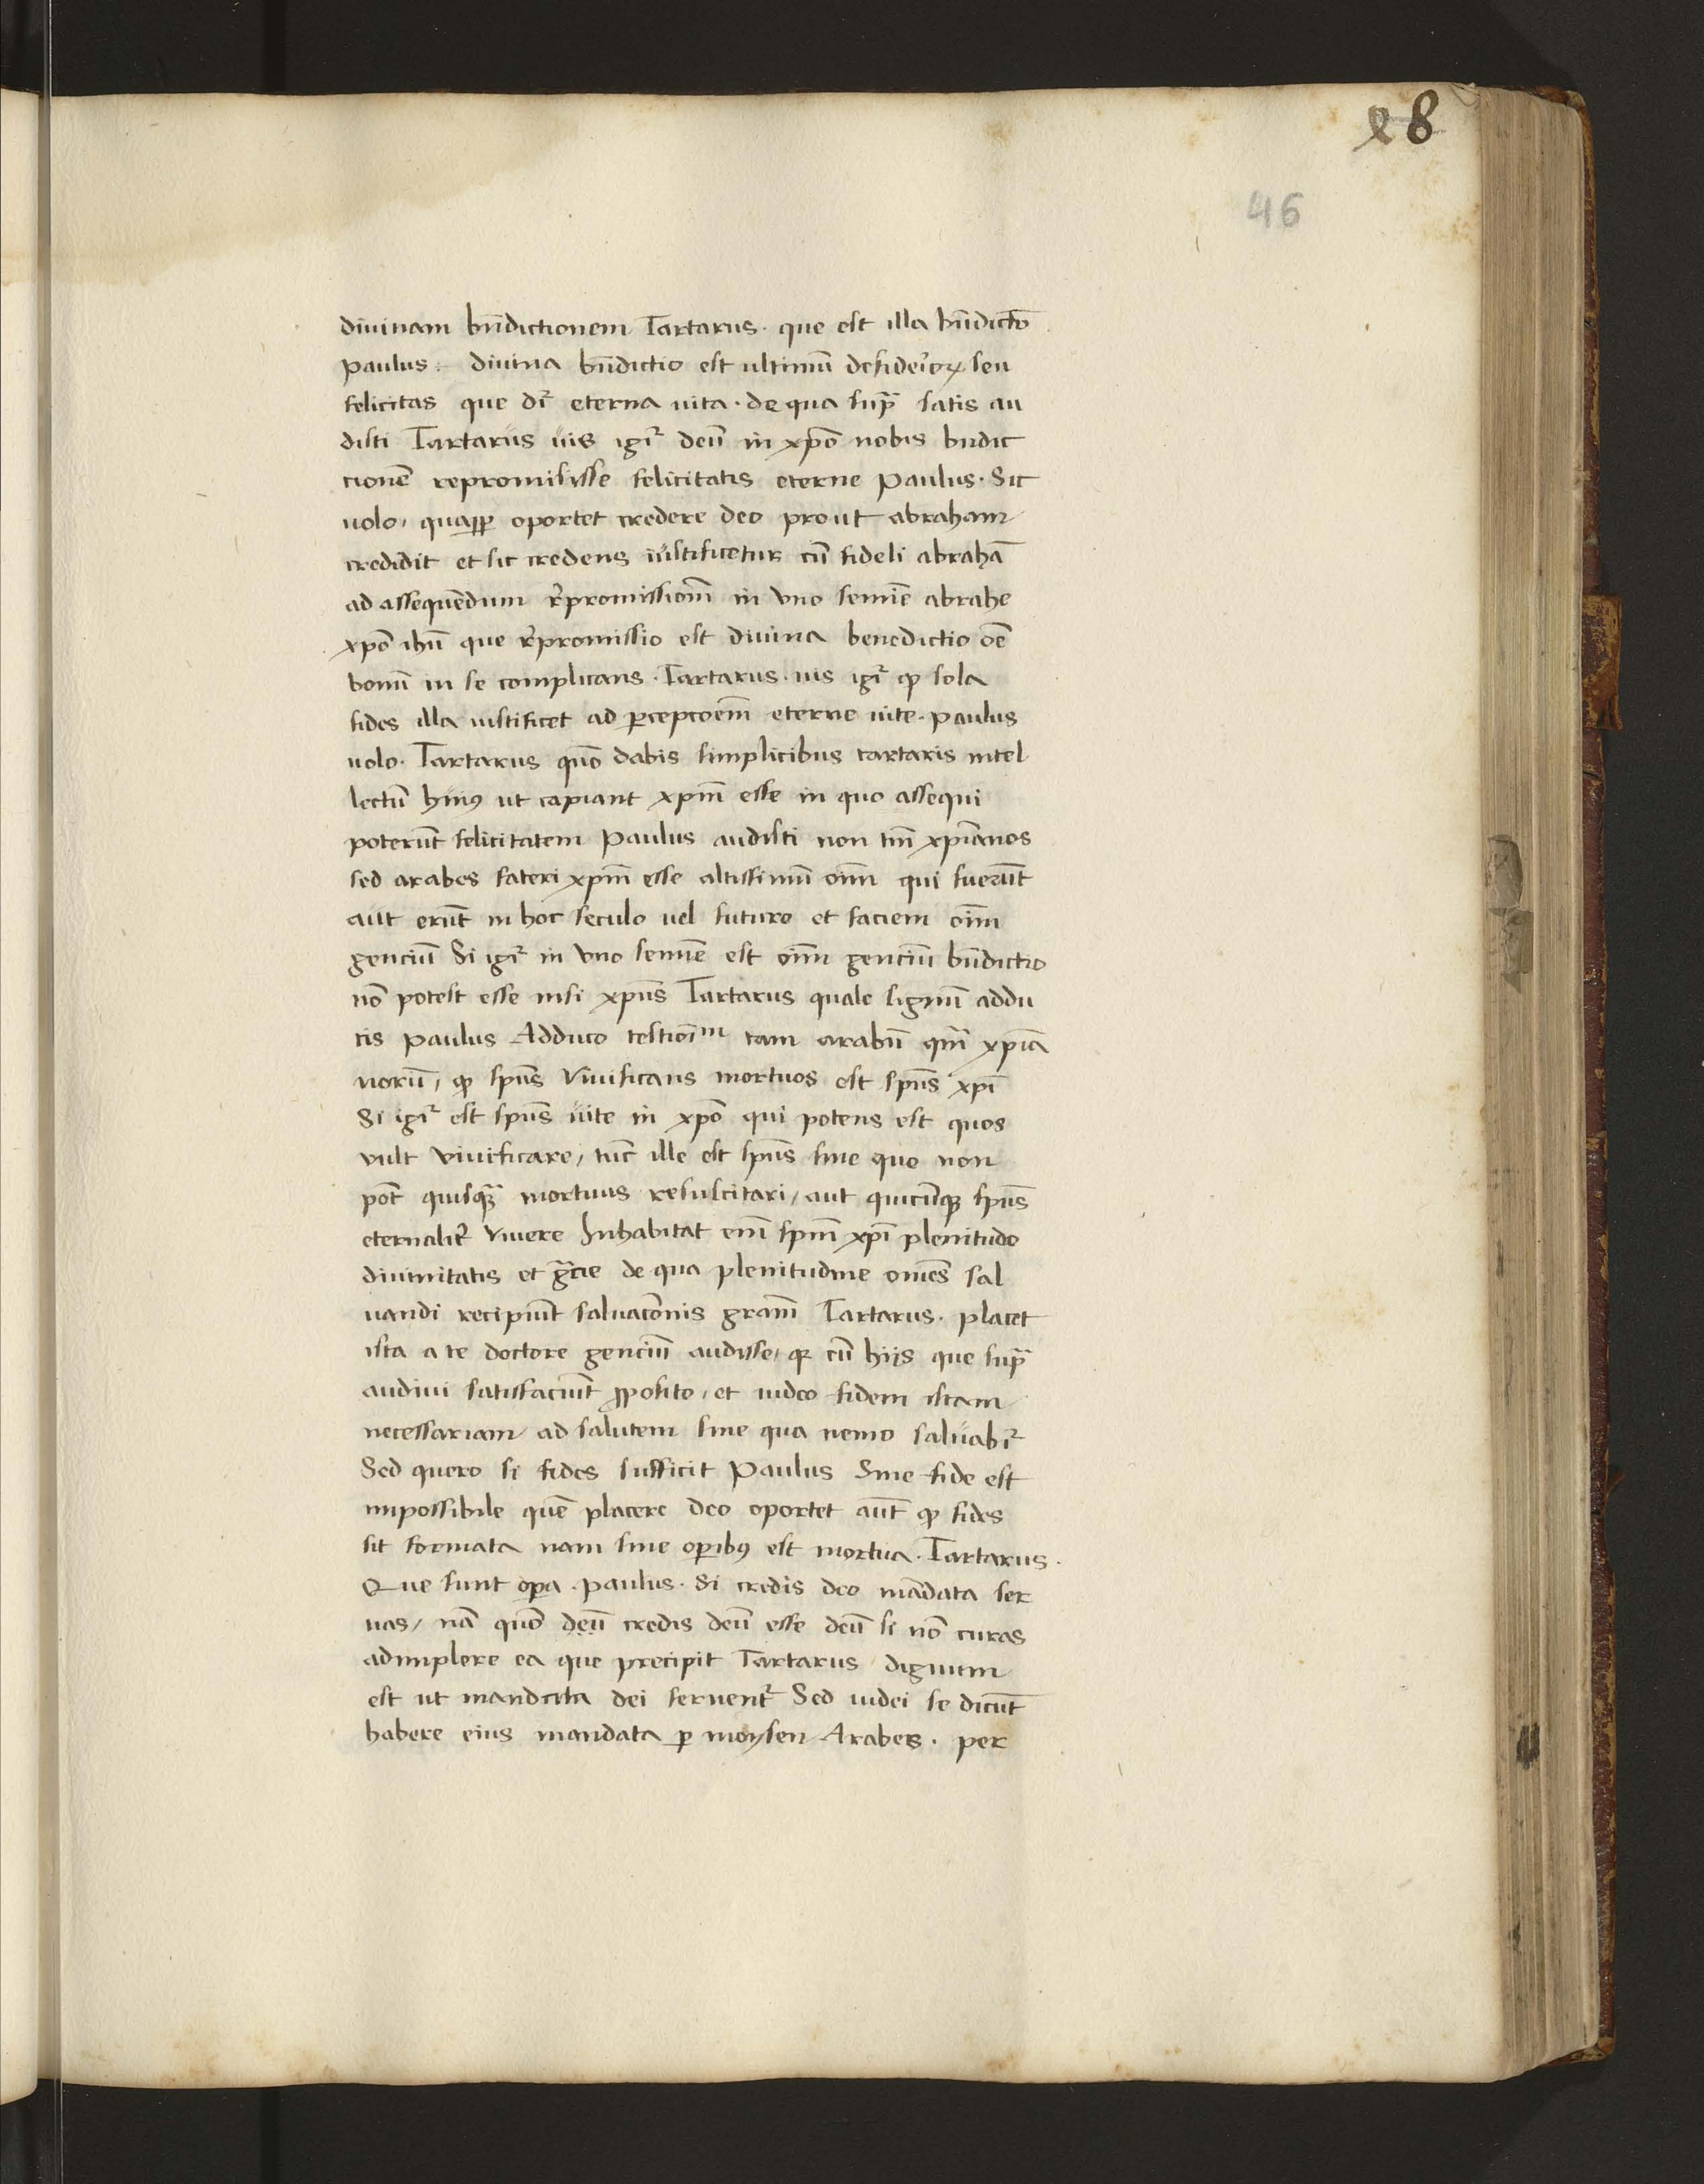 28
46
diuinam bn̄dictionem Tartarus· que est illa bn̄dictō
paulus· diuina bn̄dictio est ultimū desiderioꝝ seu
felicitas que dr̄ eterna uita· de qua supᷓ satis au
disti Tartarus uis igr̄ deū in xp̄o nobis bn̄dic
cionē repromisisse felicitatis eterne Paulus· Sic
uolo, quaꝓpꝑ oportet credere deo prout abraham
credidit et sic credens iustificetur cū fideli abrahā
ad assequendum r̄promissionē in vno semīe abrahe
xp̄o ih̄u que r̄promissio est diuina benedictio oē
bonū in se complicans· Tartarus· uis igr̄ ꝙ sola
fides illa iustificet ad ꝑcepcōem̄ eterne uite· paulus
uolo· Tartarus quō dabis simplicibus tartaris intel
lectū huiꝰ ut capiant xp̄m esse in quo assequi
poterūt felicitatem Paulus audisti non tm̄ xp̄ianos
sed arabes fateri xp̄m esse altissimū oīm qui fuerūt
aut erūt in hoc seculo uel futuro et faciem oīm
genciū Si igr̄ in vno semīe est oīm genciū bn̄dictio
nō potest esse nisi xp̄us Tartarus quale signū addu
cis paulus Adduco testioīm tam arabū qm̄ xp̄ia
norū, ꝙ sp̄us viuificans mortuos est sp̄us xp̄i
Si igr̄ est sp̄us uite in xp̄o qui potens est quos
vult viuificare, tūc ille est sp̄us sine quo non
pōt quisqᷓ mortuus resuscitari, aut quicūqꝫ sp̄us
eternalit̄ viuere Inhabitat enī sp̄m xp̄i plenitudo
diuinitatis et gᷓcie de qua plenitudine om̄es sal
uandi recipiūt saluacōnis gram̄ Tartarus· placet
ista a te doctore genciū audisse, qꝛ cū hijs que supᷓ
audiui satisfaciūt ꝓposito, et uideo fidem istam
necessariam ad salutem sine qua nemo saluabr̄
Sed quero si fides sufficit Paulus Sine fide est
impossibile quē placere deo oportet aūt ꝙ fides
sit formata nam sine oꝑibꝰ est mortua· Tartarus·
Que sunt oꝑa· paulus· Si credis deo mādata ser
uas, nā quō deū credis deū esse deū si nō curas
adimplere ea que precipit Tartarus dignum
est ut mandata dei seruent̄ Sed iudei se dicūt
habere eius mandata ꝑ moysen Arabes· per